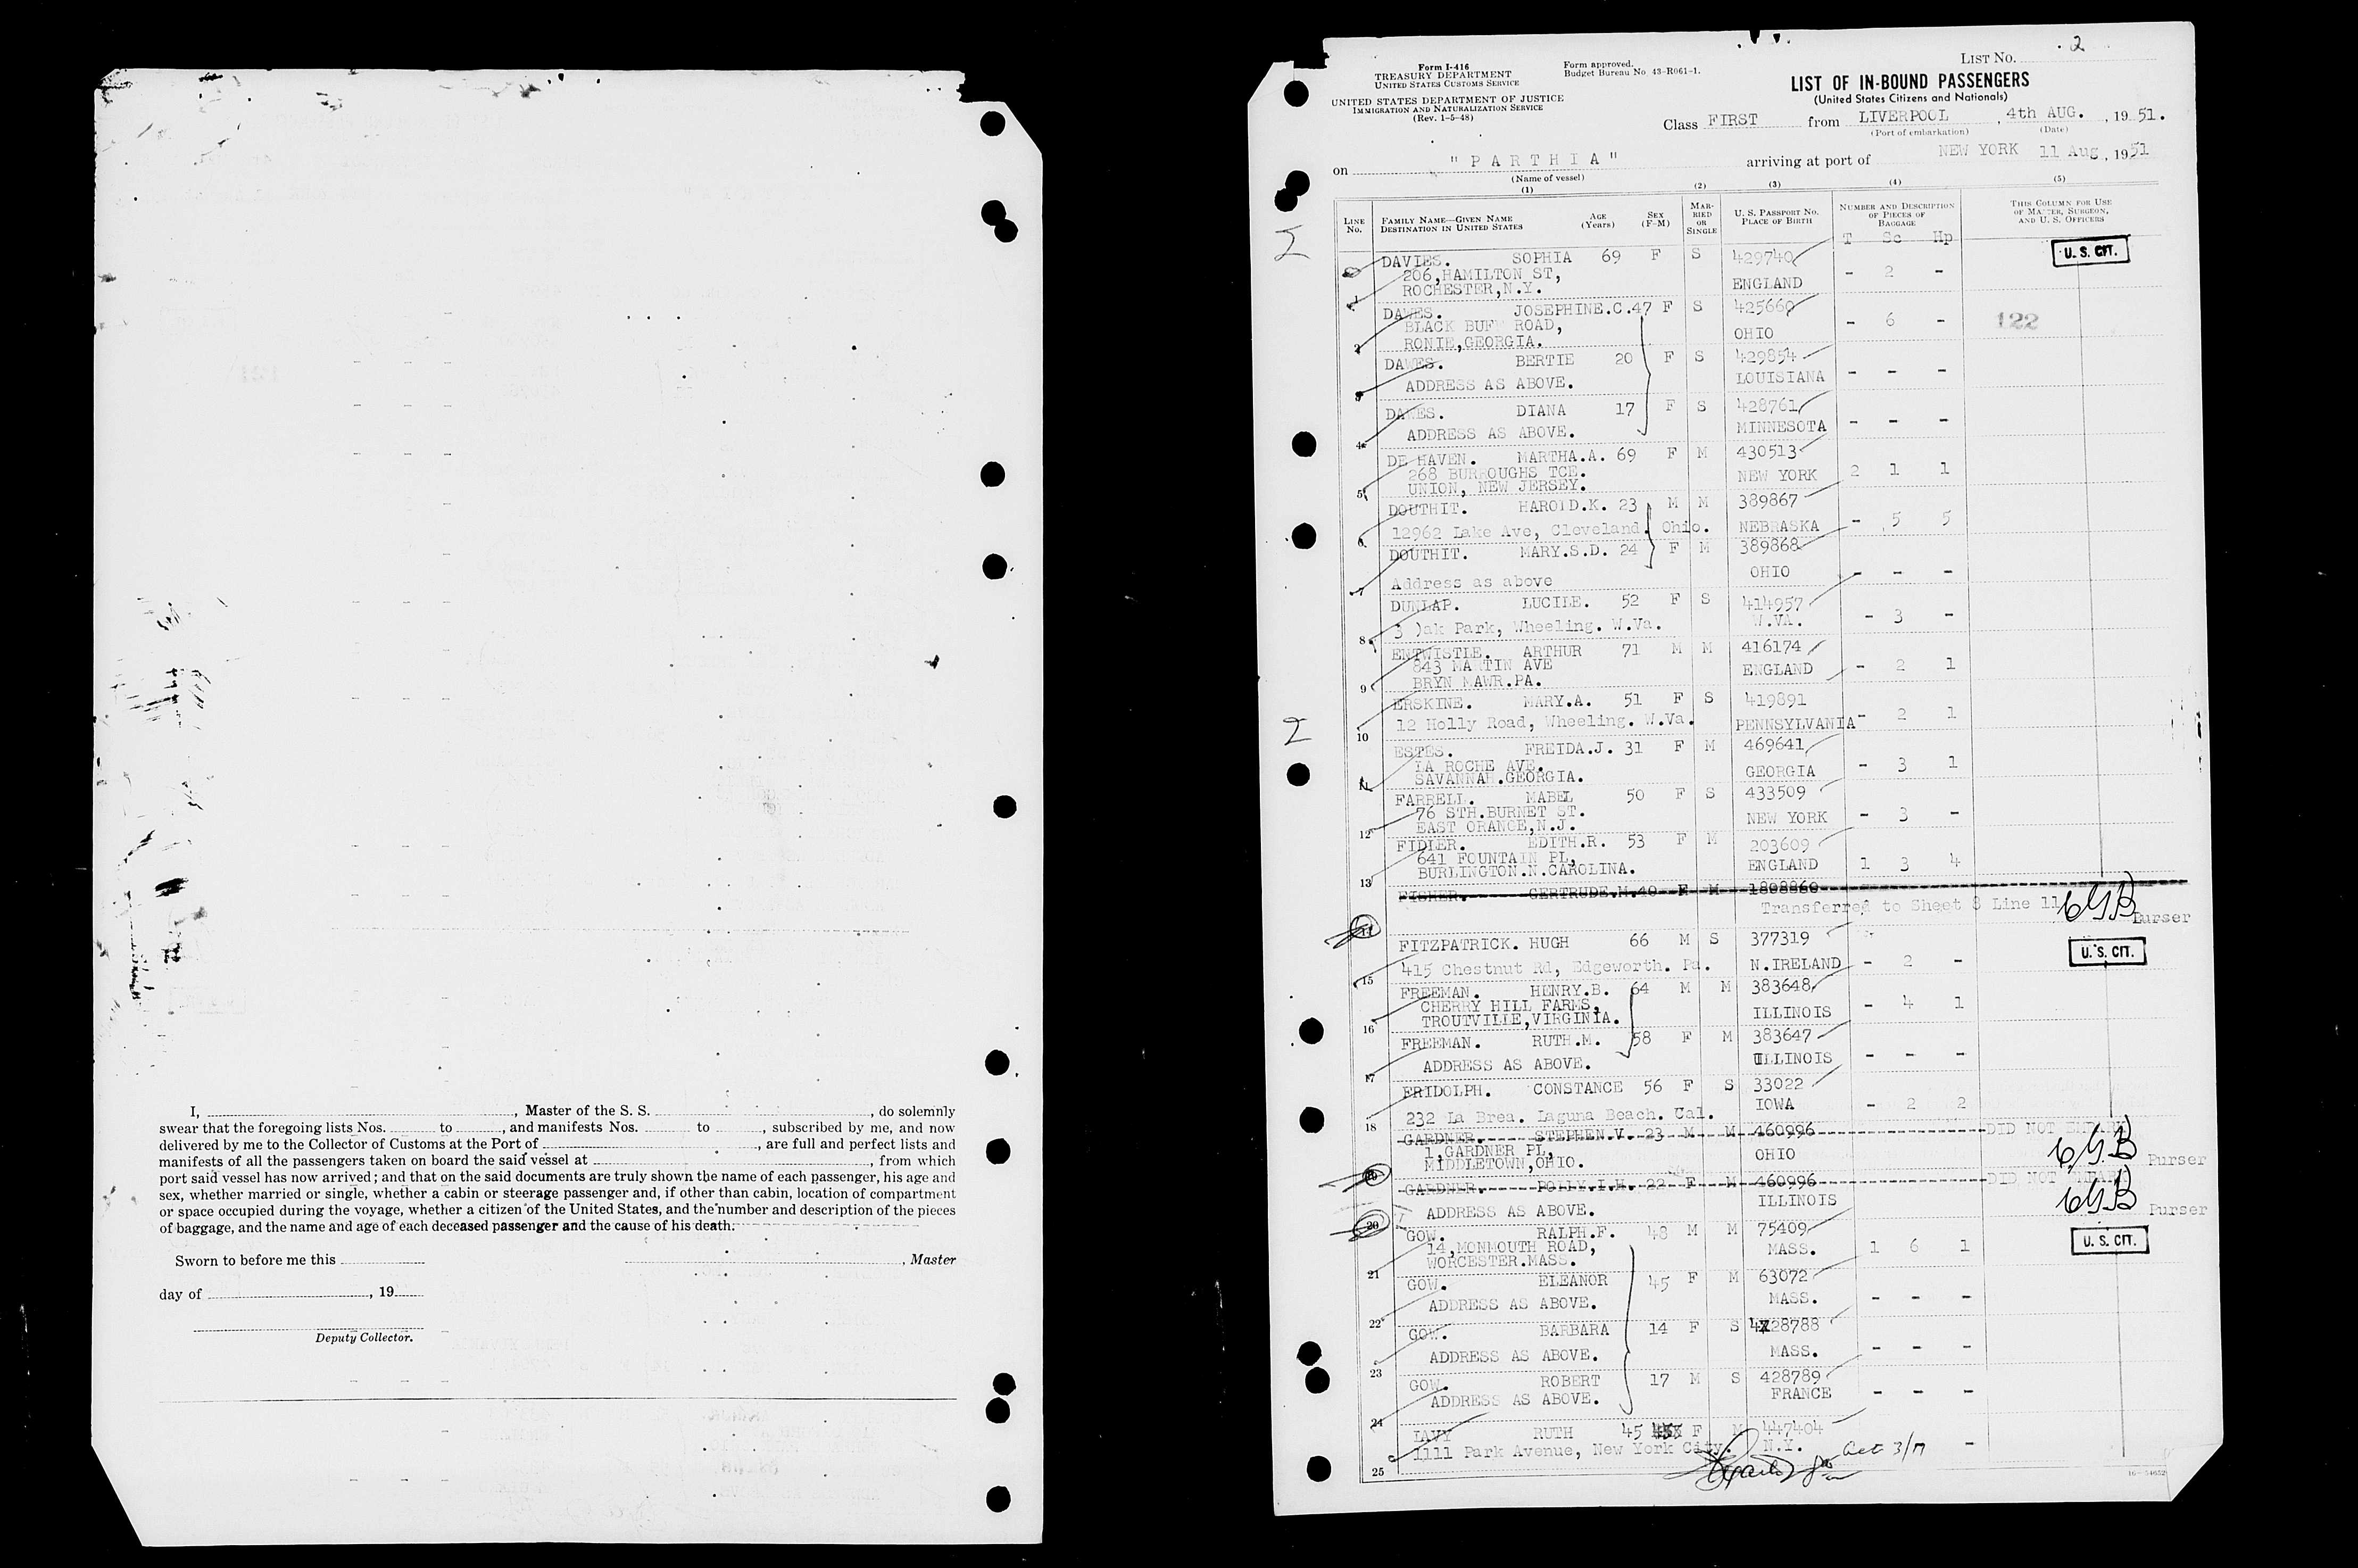 I, , Master of the S. S. , do solemnly
swear that the foregoing lists Nos. to , and manifests Nos. to , subscribed by me, and now
delivered by me to the Collector of Customs at the Port of , are full and perfect lists and
manifests of all the passengers taken on board the said vessel at , from which
port said vessel has now arrived; and that on the said documents are truly shown the name of each passenger, his age and
sex, whether married or single, whether a cabin or steerage passenger and, if other than cabin, location of compartment
or space occupied during the voyage, whether a citizen of the United States, and the number and description of the pieces
of baggage, and the name and age of each deceased passenger and the cause of his death.
Sworn to before me this , Master
day of , 19
Deputy Collector.
LIST NO. 2
Form I-416
TREASURY DEPARTMENT
UNITED STATES CUSTOMS SERVICE
Form approved.
Budget Bureau No. 43-R061-1.
UNITED STATES DEPARTMENT OF JUSTICE
IMMIGRATION AND NATURALIZATION SERVICE
(Rev. 1-5-48)
LIST OF IN-BOUND PASSENGERS
(United States Citizens and Nationals)
Class FIRST from LIVERPOOL , 4th AUG. , 19 51.
(Port of embarkation) (Date)
on " P A R T H I A " arriving at port of NEW YORK 11 Aug , 1951
(Name of vessel)
(1) (2) (3) (4) (5)
LINE NO. FAMILY NAME—GIVEN NAME DESTINATION IN UNITED STATES AGE (Years) SEX (F-M) MARRIED OR SINGLE U. S. PASSPORT NO. PLACE OF BIRTH NUMBER AND DESCRIPTION OF PIECES OF BAGGAGE THIS COLUMN FOR USE OF MASTER, SURGEON, AND U. S. OFFICERS
T Sc Hp
DAVIES. SOPHIA 69 F S 429740 U. S. CIT.
206,HAMILTON ST, - 2 -
1 ROCHESTER,N.Y. ENGLAND
DAWES. JOSEPHINE.C.47 F S 425660
BLACK BUFF ROAD, - 6 - 122
2 RONIE,GEORGIA. OHIO
DAWES. BERTIE 20 F S 429854
3 ADDRESS AS ABOVE. LOUISIANA - - -
DAWES. DIANA 17 F S 428761
4 ADDRESS AS ABOVE. MINNESOTA - - -
DE HAVEN. MARTHA.A. 69 F M 430513
268 BURROUGHS TCE. NEW YORK 2 1 1
5 UNION, NEW JERSEY.
DOUTHIT. HAROLD.K. 23 M M 389867
6 12962 Lake Ave, Cleveland. Ohio. NEBRASKA - 5 5
DOUTHIT. MARY.S.D. 24 F M 389868
7 Address as above OHIO - - -
DUNLAP. LUCILE. 52 F S 414957
8 3 )ak Park, Wheeling. W.Va. W.VA. - 3 -
ENTWISTLE. ARTHUR 71 M M 416174
843 MARTIN AVE ENGLAND - 2 1
9 BRYN MAWR.PA.
ERSKINE. MARY.A. 51 F S 419891
10 12 Holly Road, Wheeling. W.Va. PENNSYLVANIA - 2 1
ESTES. FREIDA.J. 31 F M 469641
LA ROCHE AVE. GEORGIA - 3 1
11 SAVANNAH.GEORGIA.
FARRELL. MABEL 50 F S 433509
76 STH.BURNET ST. NEW YORK - 3 -
12 EAST ORANGE,N.J.
FIDLER. EDITH.R. 53 F M 203609
641 FOUNTAIN PL, ENGLAND 1 3 4
13 BURLINGTON.N.CAROLINA.
FISHER. GERTRUDE.M.40 F M 1808860
14 Transferred to Sheet 8 Line 11 Purser
FITZPATRICK. HUGH 66 M S 377319 U. S. CIT.
15 415 Chestnut Rd, Edgeworth. Pa. N.IRELAND - 2 -
FREEMAN. HENRY.B. 64 M M 383648
CHERRY HILL FARMS, ILLINOIS - 4 1
16 TROUTVILLE,VIRGINIA.
FREEMAN. RUTH.M. 58 F M 383647
17 ADDRESS AS ABOVE. ILLINOIS - - -
FRIDOLPH. CONSTANCE 56 F S 33022
18 232 La Brea. Laguna Beach. Cal. IOWA - 2 2
GARDNER. STEPHEN.V. 23 M M 460996 DID NOT EMBARK
1,GARDNER PL, OHIO Purser
19 MIDDLETOWN,OHIO.
GARDNER. POLLY.I.W. 22 F M 460996 DID NOT EMBARK
20 ADDRESS AS ABOVE. ILLINOIS Purser
GOW. RALPH.F. 48 M M 75409 U. S. CIT.
14,MONMOUTH ROAD, MASS. 1 6 1
21 WORCESTER.MASS.
GOW. ELEANOR 45 F M 63072
22 ADDRESS AS ABOVE. MASS. - - -
GOW. BARBARA 14 F S 428788
23 ADDRESS AS ABOVE. MASS. - - -
GOW. ROBERT 17 M S 428789
24 ADDRESS AS ABOVE. FRANCE - - -
LAVY RUTH 45 F M 447404
25 1111 Park Avenue, New York City. N.Y. -